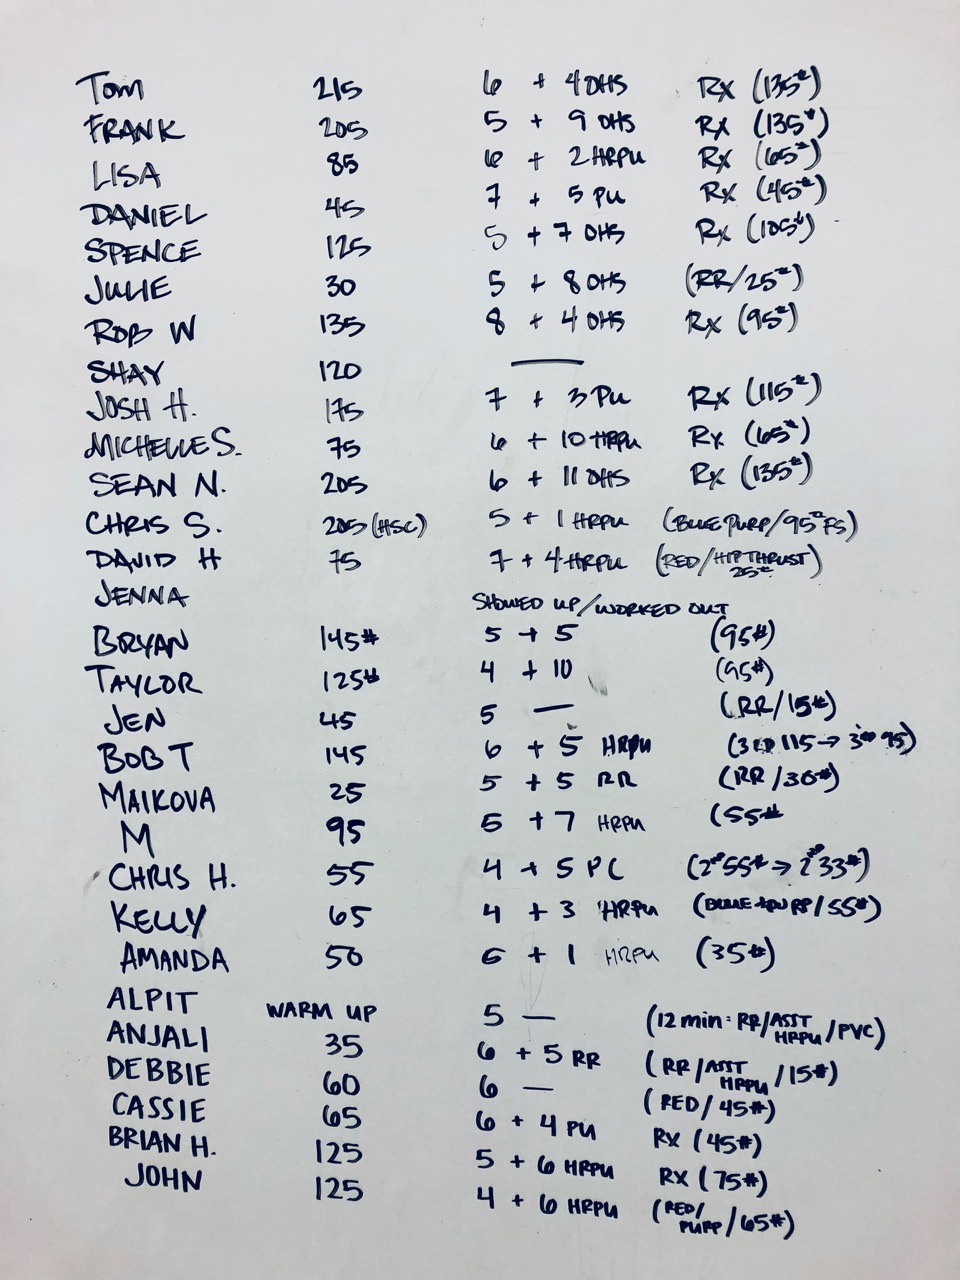 Tom 215 6 + 4 OHS Rx (135#)
FRANK 205 5 + 9 OHS Rx (135#)
LISA 85 6 + 2 HRPU Rx (65#)
DANIEL 45 7 + 5 PU Rx (45#)
SPENCE 125 5 + 7 OHS Rx (105#)
JULIE 30 5 + 8 OHS (RR/25#)
ROB W 135 8 + 4 OHS Rx (95#)
SHAY 120 —
JOSH H. 175 7 + 3 PU Rx (115#)
MICHELLE S. 75 6 + 10 HRPU Rx (65#)
SEAN N. 205 6 + 11 OHS Rx (135#)
CHRIS S. 205 (HSC) 5 + 1 HRPU (BLUE PURP/95# FS)
DAVID H 75 7 + 4 HRPU (RED/HIP THRUST 25#)
JENNA SHOWED UP/WORKED OUT
BRYAN 145# 5 + 5 (95#)
TAYLOR 125# 4 + 10 (95#)
JEN 45 5 — (RR/15#)
BOB T 145 6 + 5 HRPU (3 115 → 3 95)
MAIKOVA 25 5 + 5 RR (RR/30#)
M 95 5 + 7 HRPU (55#
CHRIS H. 55 4 + 5 PC (2 55# → 2 33#)
KELLY 65 4 + 3 HRPU (BLUE + PURP/55#)
AMANDA 50 6 + 1 HRPU (35#)
ALPIT WARM UP 5 — (12 min: RR/ASST HRPU/PVC)
ANJALI 35 6 + 5 RR (RR/ASST HRPU/15#)
DEBBIE 60 6 — (RED/45#)
CASSIE 65 6 + 4 PU Rx (45#)
BRIAN H. 125 5 + 6 HRPU Rx (75#)
JOHN 125 4 + 6 HRPU (RED/PURP/65#)